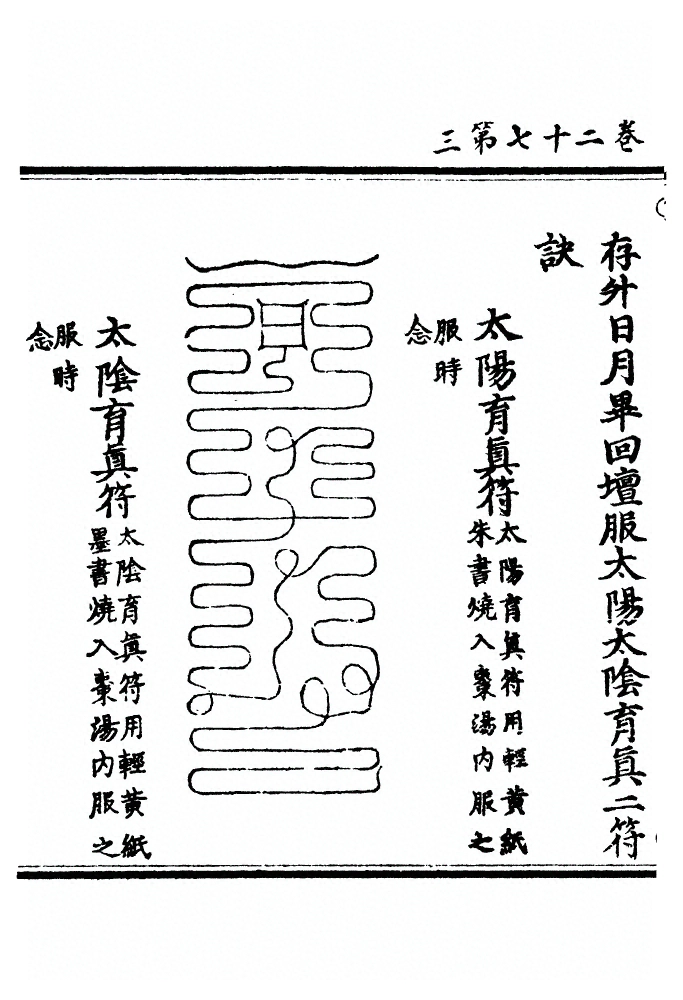 卷二十七第三
存外日月畢回壇服太陽太陰育真二符
訣
太陽育眞符太陽育眞符用輕黃紙
朱書燒入棗湯内服之
服時
念
太陰育眞符太陰育眞符用輕黃紙
墨書燒入棗湯内服之
服時
念